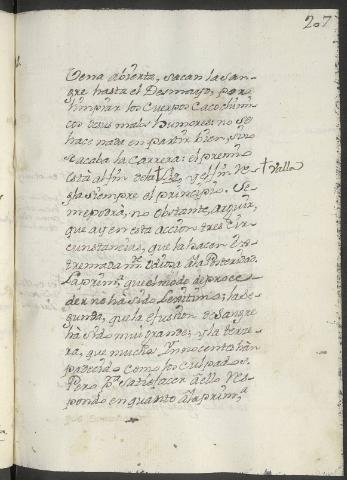 207
Vena abierta, sacan la San-
gre hasta el Desmayo, por
limpiar los Cuerpos Cacochimi-
cos de sus malos humores: no se
hace nada en partir bien, sino
se acaba la Carrera: el premio
está al fin de la † y el fin re-
† Valla
gla siempre el principio. Se
me podrá, no obstante, arguir,
que ay en esta accion tres Cir-
cunstancias, que la hacen es-
tremadamte. odiosa â la Posteridad.
La prima. que el modo de proce-
der no há sido Legitimo; la Se-
gunda, que la efusion de Sangre
há sido mui grande; y la terce-
ra, que muchos Innocentes han
padecido como los culpados.
Pero pa. Satisfacer â ello res-
pondo en quanto â la prima.